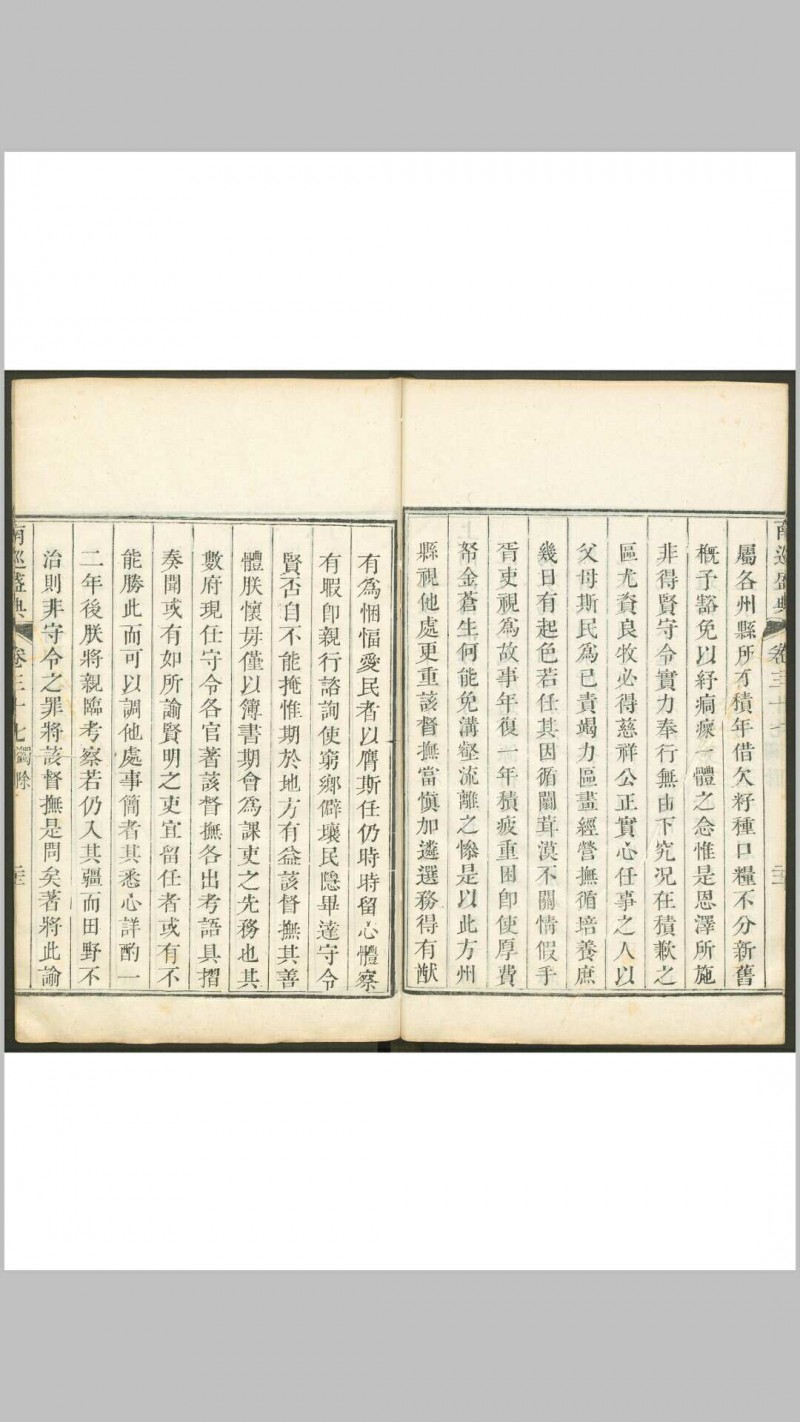 南巡盛典 卷三十七
屬各州縣所有積年借欠籽種口糧不分新舊
槪予豁免以紓痌瘝一體之念惟是恩澤所施
非得賢守令實力奉行無由下究况在積歉之
區尤資良牧必得慈祥公正實心任事之人以
父母斯民為己責竭力區畫經營撫循培養庶
幾日有起色若任其因循闒茸漠不關情假手
胥吏視為故事年復一年積疲重困卽使厚費
帑金蒼生何能免溝壑流離之慘是以此方州
縣視他處更重該督撫當愼加遴選務得有猷
有為悃愊愛民者以膺斯任仍時時留心體察
有暇卽親行諮詢使窮鄉僻壤民隱畢達守令
賢否自不能掩惟期於地方有益該督撫其善
體朕懷毋僅以簿書期會為課吏之先務也其
數府現任守令各官著該督撫各出考語具摺
奏聞或有如所諭賢明之吏宜留任者或有不
能勝此而可以調他處事簡者其悉心詳酌一
二年後朕將親臨考察若仍入其疆而田野不
治則非守令之罪將該督撫是問矣著將此諭
南巡盛典 卷三十七 蠲除